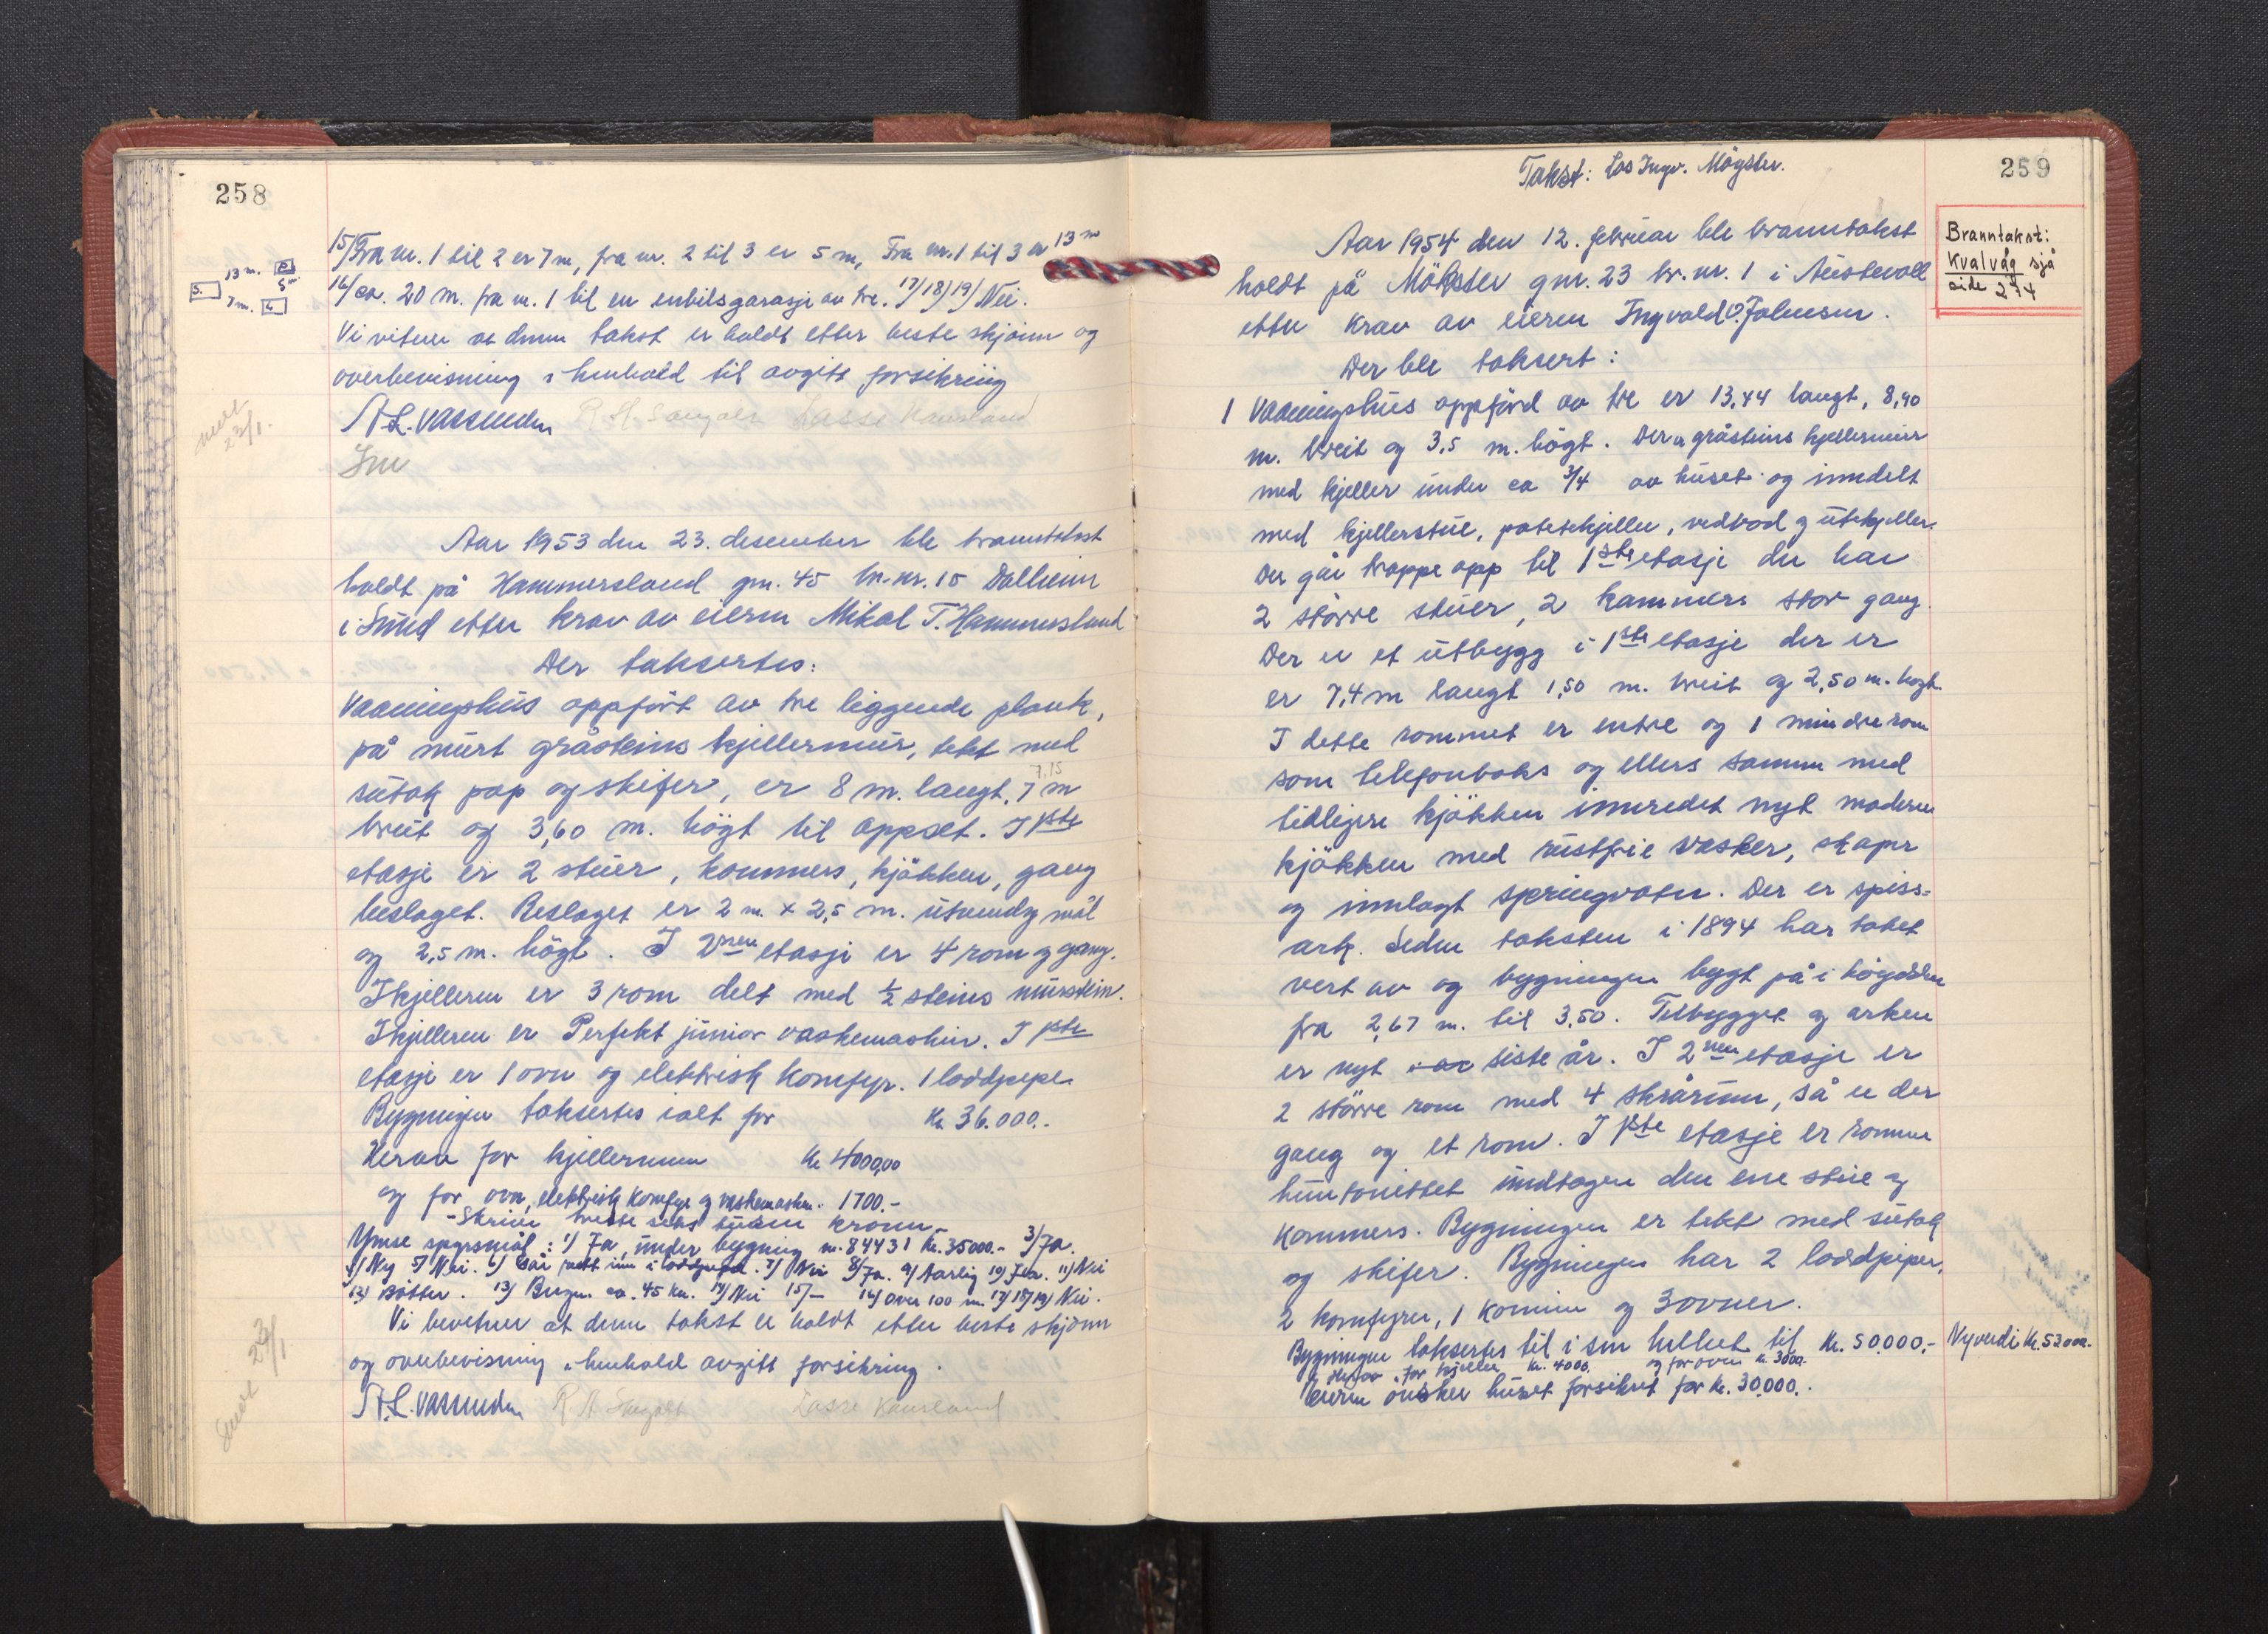 258
15/ Fra nr. 1 til 2 er 7 m, fra nr. 2 til 3 er 5 m, Fra nr. 1 til 3 er 13 m
13 m.
5 m
7 m.
16/ ca. 20 m. fra nr. 1 til en enbilsgarasje av tre. 17/ 18/ 19/ Nei.
Vi vitner at denne takst er holdt etter beste skjönn og
overbevisning i henhold til avgitt forsikring
A. L. Vassenden R. H. Lasse Kausland
sendt
23/1.
Aar 1953 den 23. desember ble branntakst
holdt på Hammersland gnr. 45 br.nr. 15 Dalheim
i Sund etter krav av eieren Mikal T. Hammersland
Der taksertes:
Vaaningshus oppfört av tre liggende plank,
på murt gråsteins kjellermur, tekt med
7,15
sutak pap og skifer, er 8 m. langt, 7 m
breit og 3,60 m. högt til oppset. I 1ste
etasje er 2 stuer, kammers, kjökken, gang
beslaget. Beslaget er 2 m. x 2,5 m. utvendig mål
og 2,5 m. högt. I 2nen etasje er 4 rom og gang.
I kjelleren er 3 rom delt med ½ steins murstein.
I kjelleren er Perfekt junior vaskemaskin. I 1ste
etasje er 1 ovn og elektrisk komfyr. 1 loddpipe.
Bygningen taksertes ialt for Kr. 36.000.-
Herav for kjellermuren Kr 4000,00
og for ovn, elektrisk komfyr og vaskemaskin. 1700.-
- Skriver tretti seks tusen kroner -
Ymse spyrsmål: 1/ Ja, under bygning nr. 84431 kr. 35000.- 3/ Ja.
4/ Ny 5/ Nei. 6/ Går rett inn i loddpipa. 7/ Nei 8/ Ja. 9/ Aarlig 10/ Ja. 11/ Nei
12/ Bötter. 13/ Bergen ca. 45 km. 14/ Nei 15/ - 16/ Over 100 m. 17/ 18/ 19/ Nei.
Vi bevitner at denne takst er holdt etter beste skjönn
og overbevisning i henhold avgitt forsikring.
A. L. Vassenden R. H. Lasse Kausland
Sendt 23/1
259
Takst: Los Ingv. Mögster.
Branntakst:
Kvalvåg sjå
side 274
Aar 1954 den 12. februar ble branntakst
holdt på Mökster gnr. 23 br. nr. 1 i Austevoll
etter krav av eieren Ingvald O. Johnsen.
Der ble taksert:
1 Vaaningshus oppförd av tre er 13,44 langt, 8,90
m. breit og 3,5 m. högt. Der er gråsteins kjellermur
med kjeller under ca 3/4 av huset og inndelt
med kjellerstue, potetekjeller, vedbod og utekjeller.
Der går trappe opp til 1ste etasje der har
2 större stuer, 2 kammers stor gang.
Der er et utbygg i 1ste etasje der er
er 7,4 m langt 1,50 m. breit og 2,50 m. högt.
I dette rommet er entre og 1 mindre rom
som telefonboks og ellers samme med
tidligere kjökken innredet nyt moderne
kjökken med rustfrie vasker, skaper
og innlagt springvatn. Der er spiss-
ark. Siden taksten i 1894 har taket
vert av og bygningen bygt på i höydden
fra 2,67 m. til 3,50. Tilbygget og arken
er nyt siste år. I 2nen etasje er
2 större rom med 4 skrårum, så er der
gang og et rom. I 1ste etasje er rommene
huntonittet undtagen den ene stue og
kammers. Bygningen er tekt med sutak
og skifer. Bygningen har 2 loddpiper,
2 komfyrer, 1 kamin og 3 ovner.
Bygningen taksertes til i sin helhet til Kr. 50.000.- Nyverdi Kr. 53000.-
herav for kjeller kr. 4000. og for ovner kr. 3000.
Eieren önsker huset forsikret for kr. 30.000.-